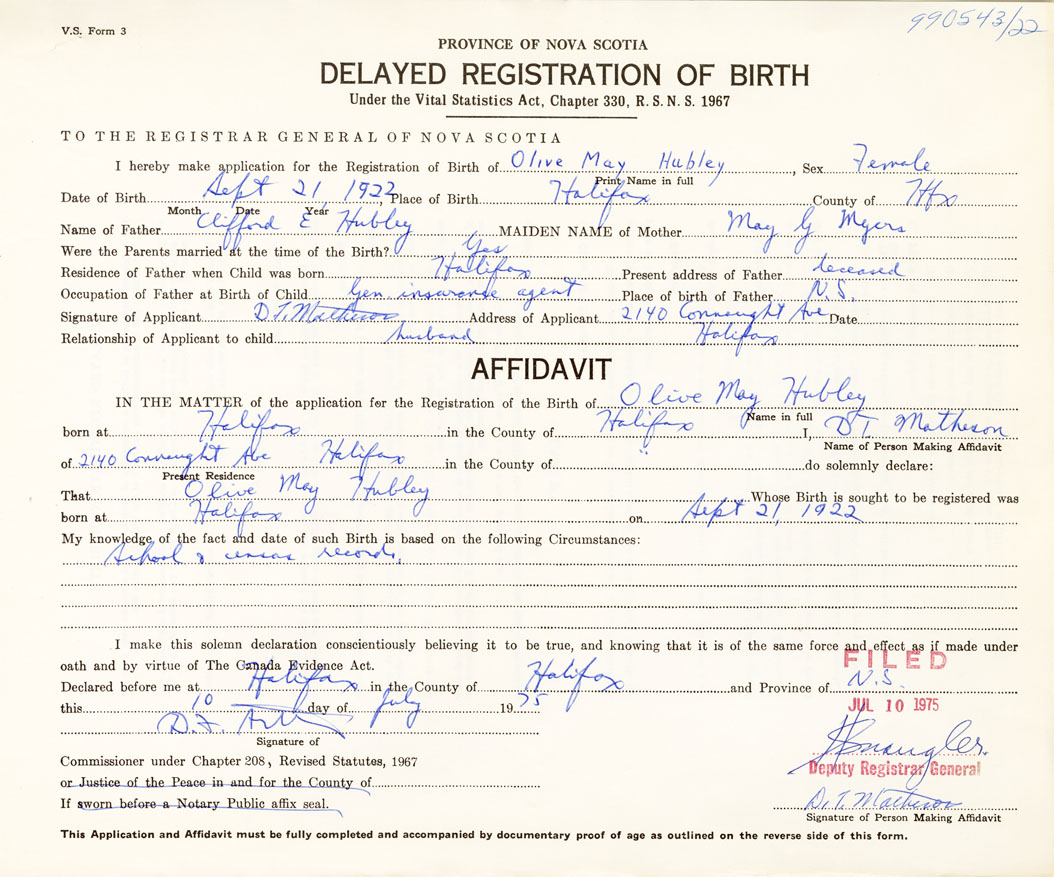 V.S. Form 3
990543/22
PROVINCE OF NOVA SCOTIA
DELAYED REGISTRATION OF BIRTH
Under the Vital Statistics Act, Chapter 330, R. S. N. S. 1967
TO THE REGISTRAR GENERAL OF NOVA SCOTIA
I hereby make application for the Registration of Birth of Olive May Hubley, Sex Female
Print Name in full
Date of Birth Sept 21, 1922, Place of Birth Halifax County of Hfx
Month Date Year
Name of Father Clifford E Hubley MAIDEN NAME of Mother May G Myers
Were the Parents married at the time of the Birth? Yes
Residence of Father when Child was born Halifax Present address of Father deceased
Occupation of Father at Birth of Child Gen. insuranse agent Place of birth of Father N.S.
Signature of Applicant D.T. Matheson Address of Applicant 2140 Connaught Ave Date
Relationship of Applicant to child husband Halifax
AFFIDAVIT
IN THE MATTER of the application for the Registration of the Birth of Olive May Hubley
Name in full
born at Halifax in the County of Halifax I, DT Matheson
Name of Person Making Affidavit
of 2140 Connaught Ave Halifax in the County of do solemnly declare:
Present Residence
That Olive May Hubley Whose Birth is sought to be registered was
born at Halifax on Sept 21, 1922
My knowledge of the fact and date of such Birth is based on the following Circumstances:
School & census records.
I make this solemn declaration conscientiously believing it to be true, and knowing that it is of the same force and effect as if made under
oath and by virtue of The Canada Evidence Act.
FILED
Declared before me at Halifax in the County of Halifax and Province of N.S.
this 10 day of July 1975
JUL 10 1975
Signature of
Commissioner under Chapter 208, Revised Statutes, 1967
Deputy Registrar General
or Justice of the Peace in and for the County of
If sworn before a Notary Public affix seal.
D. T. Matheson
Signature of Person Making Affidavit
This Application and Affidavit must be fully completed and accompanied by documentary proof of age as outlined on the reverse side of this form.